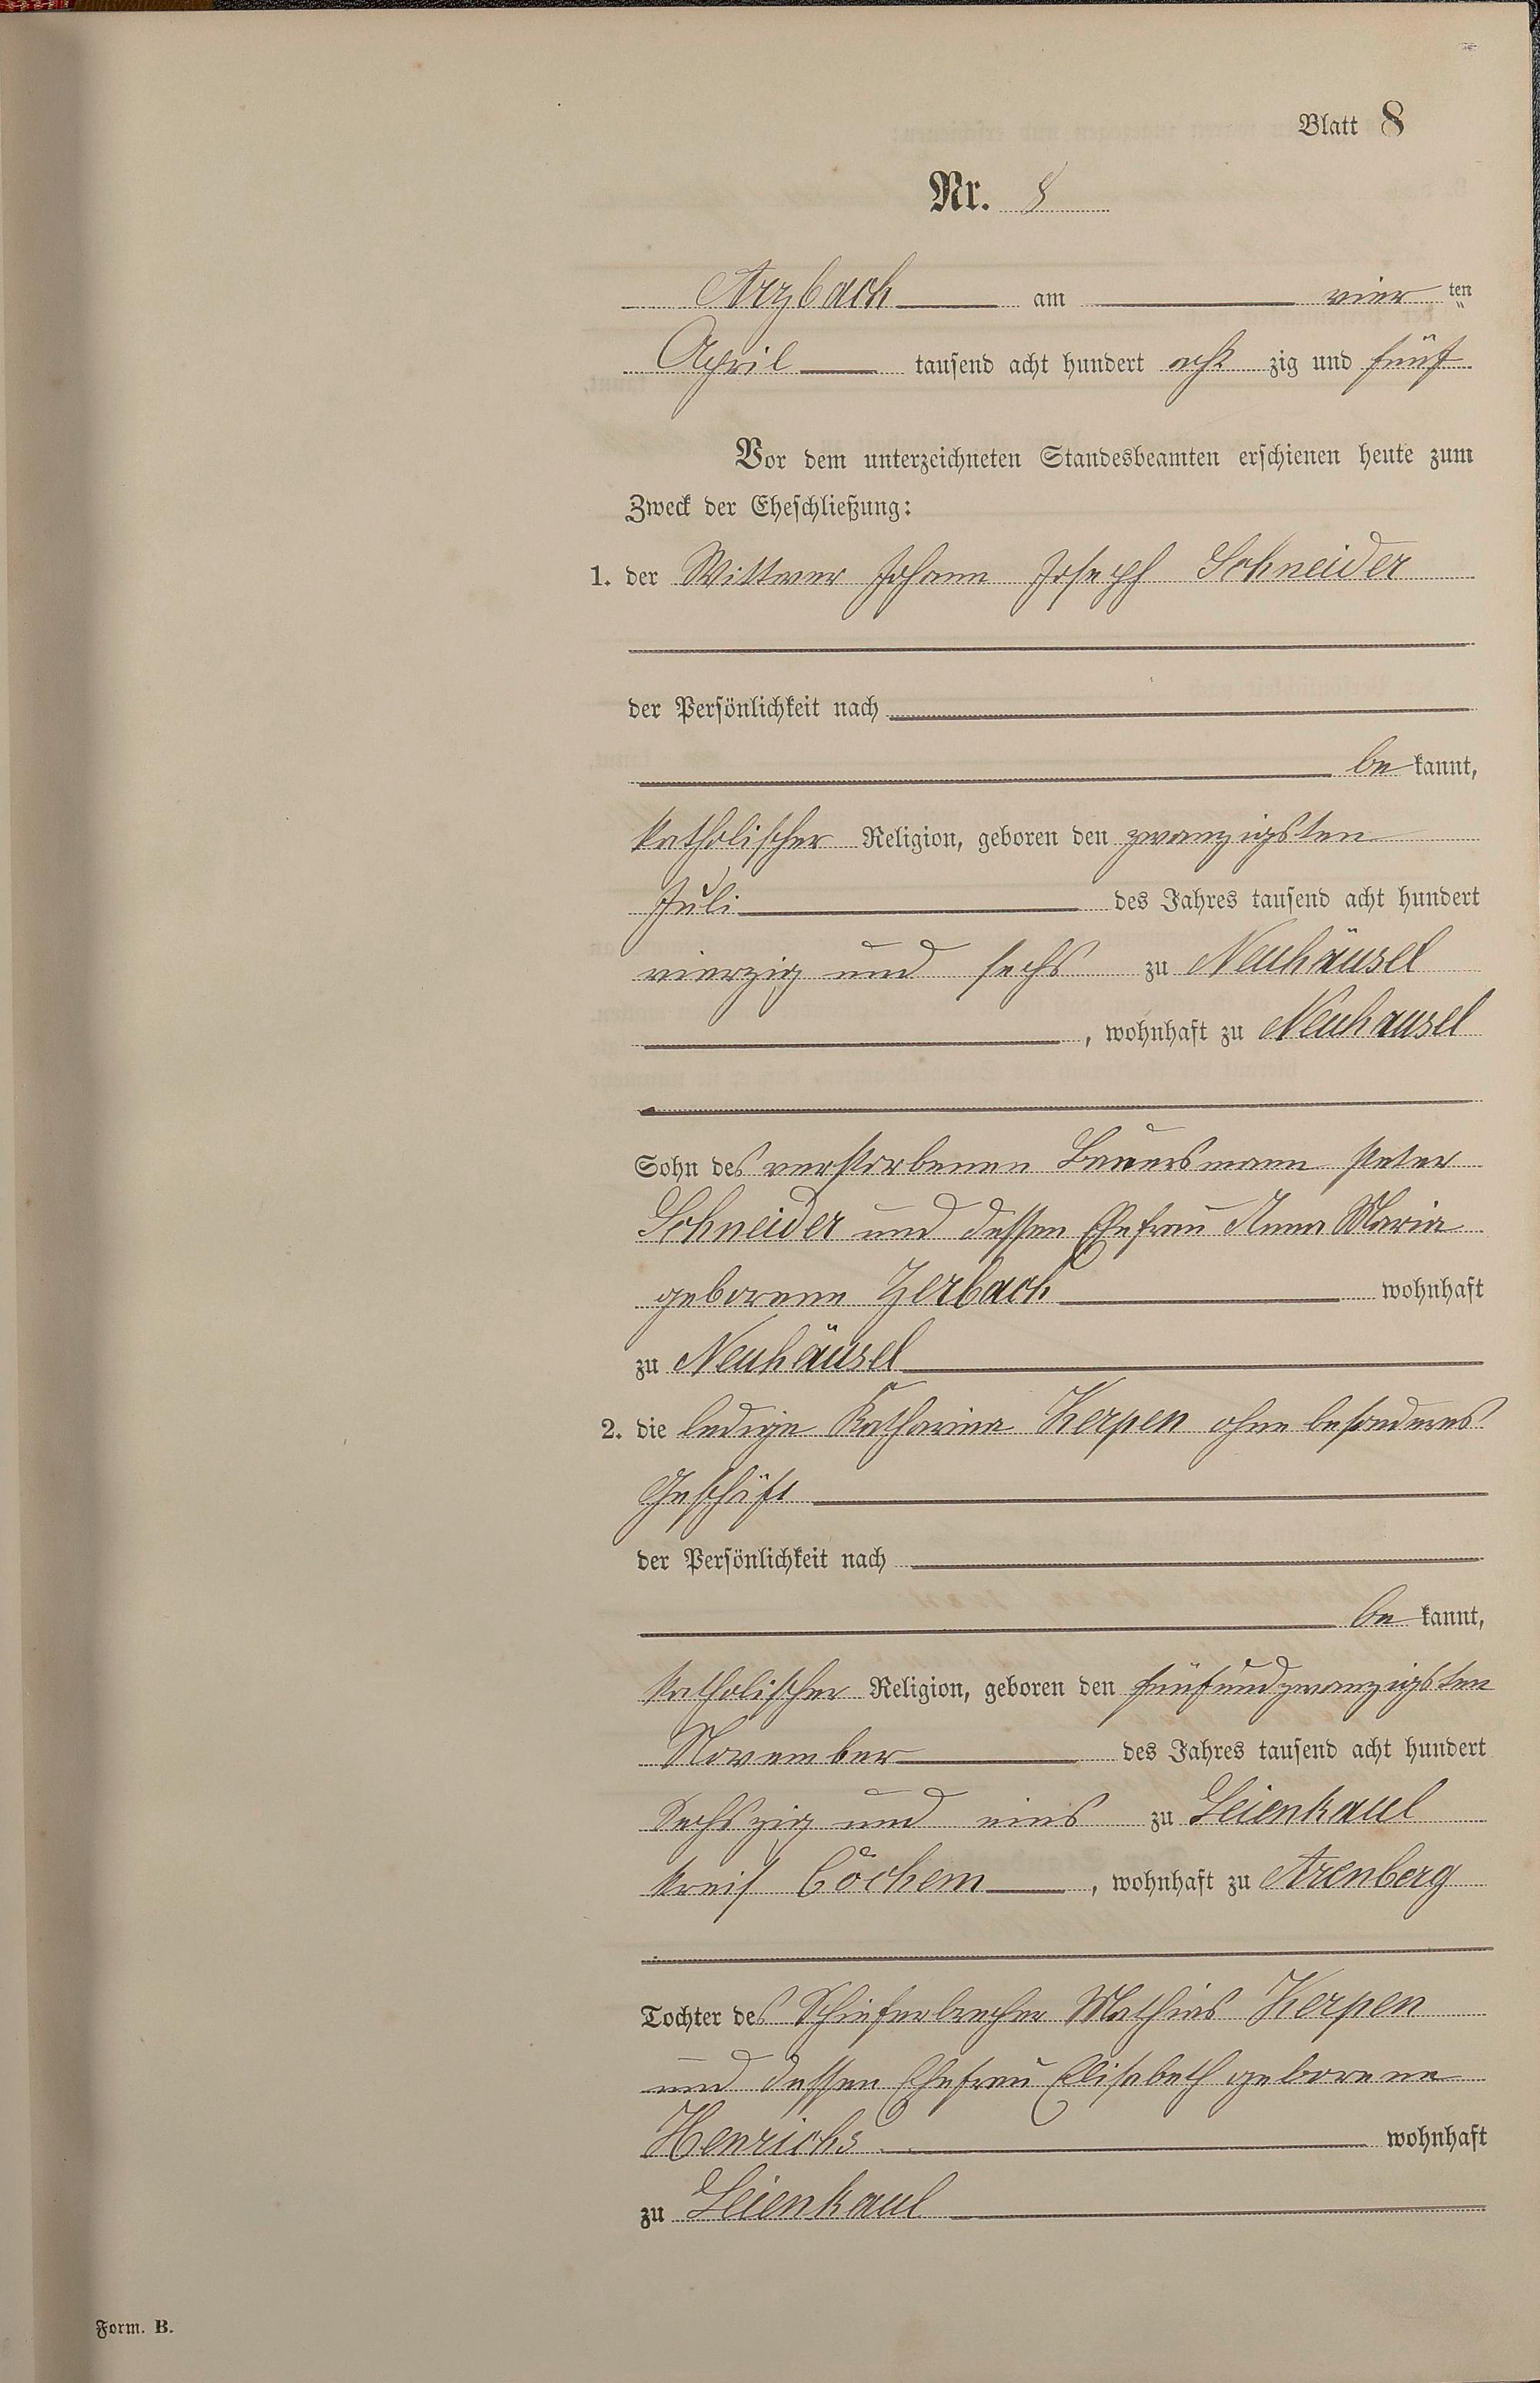 Blatt 8
Nr. 8
Arzbach am vier ten
April tausend acht hundert acht zig und fünf
Vor dem unterzeichneten Standesbeamten erschienen heute zum
Zweck der Eheschließung:
1. der Wittwer Johann Joseph Schneider
der Persönlichkeit nach
be kannt,
katholischer Religion, geboren den zwanzigsten
Juli des Jahres tausend acht hundert
vierzig und sechs zu Neuhäusel
, wohnhaft zu Neuhausel
Sohn des verstorbenen Bauersmann Peter
Schneider und dessen Ehefrau Anna Maria
geborene Zerbach wohnhaft
zu Neuhäusel
2. die ledige Katharina Kerpen ohne besonderes
Geschäft
der Persönlichkeit nach
be kannt,
katholischer Religion, geboren den fünfundzwanzigsten
November des Jahres tausend acht hundert
Sechszig und eins zu Leienkaul
Kreis Cochem, wohnhaft zu Arenberg
Tochter des Schieferbrecher Mathias Kerpen
und dessen Ehefrau Elisabeth geborene
Henrichs wohnhaft
zu Leienkaul
Form. B.